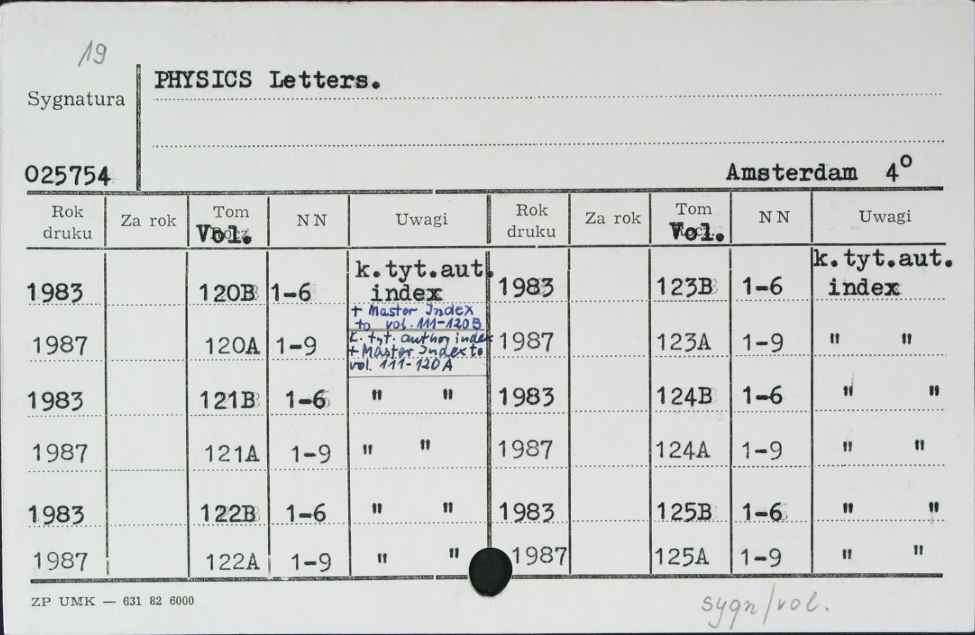 19
PHYSICS Letters.
Sygnatura
025754
Amsterdam 4°
Rok druku Za rok Tom Vol. NN Uwagi Rok druku Za rok Tom Vol. NN Uwagi
1983 120B 1-6 k.tyt.aut. index 1983 123B 1-6 k.tyt.aut. index
+ Master Index
to vol. 111-120B
1987 120A 1-9 k. tyt. author index 1987 123A 1-9 " "
+ Master Index to
vol. 111-120A
1983 121B 1-6 " " 1983 124B 1-6 " "
1987 121A 1-9 " " 1987 124A 1-9 " "
1983 122B 1-6 " " 1983 125B 1-6 " "
1987 122A 1-9 " " 1987 125A 1-9 " "
ZP UMK — 631 82 6000
sygn/vol.